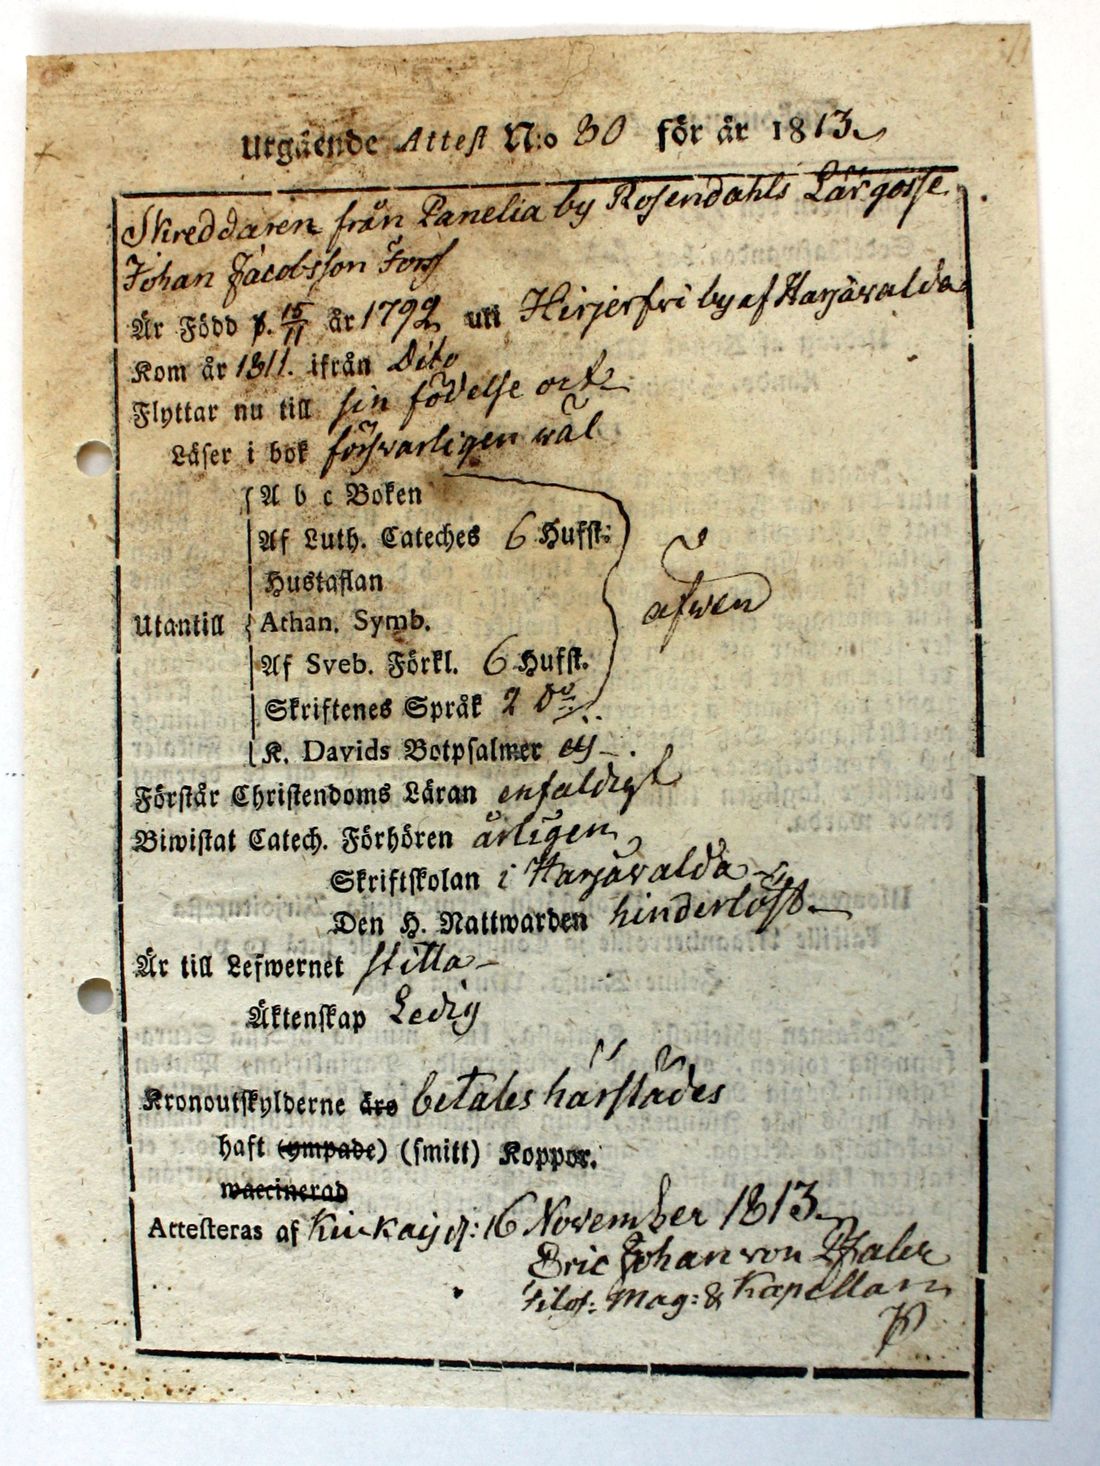 Utgående Attest N:o 80 för år 1813.
Skreddaren från Panelia by Rosendahls Lärgosse
Johan Jacobsson Fors
Är Född d. 15/11 år 1792 uti Hirjerfvi by af Harjåvalda
Kom år 1811. ifrån Dito
Flyttar nu till sin födelse ort
Läser i bok försvarligen wäl
A b c Boken
Af Luth. Cateches 6 Hufst:
Hustaflan
äfwen
Utantill Athan. Symb.
Af Sveb. Förkl. 6 Hufst.
Skriftenes Språk 2 Do
K. Davids Botpsalmer ej
Förstår Christendoms Läran enfaldigt
Biwistat Catech. Förhören årligen
Skriftskolan i Harjåvalda
Den H. Nattwarden hinderlöst
Är till Lefwernet stilla
Äktenskap Ledig
Kronoutskylderne äro betales härstädes
haft (ympade) (smitt) Koppor.
waccinerad
Attesteras af Kiukais d: 16 November 1813
Eric Johan von Pfaler
Filos: Mag: & Kapellan